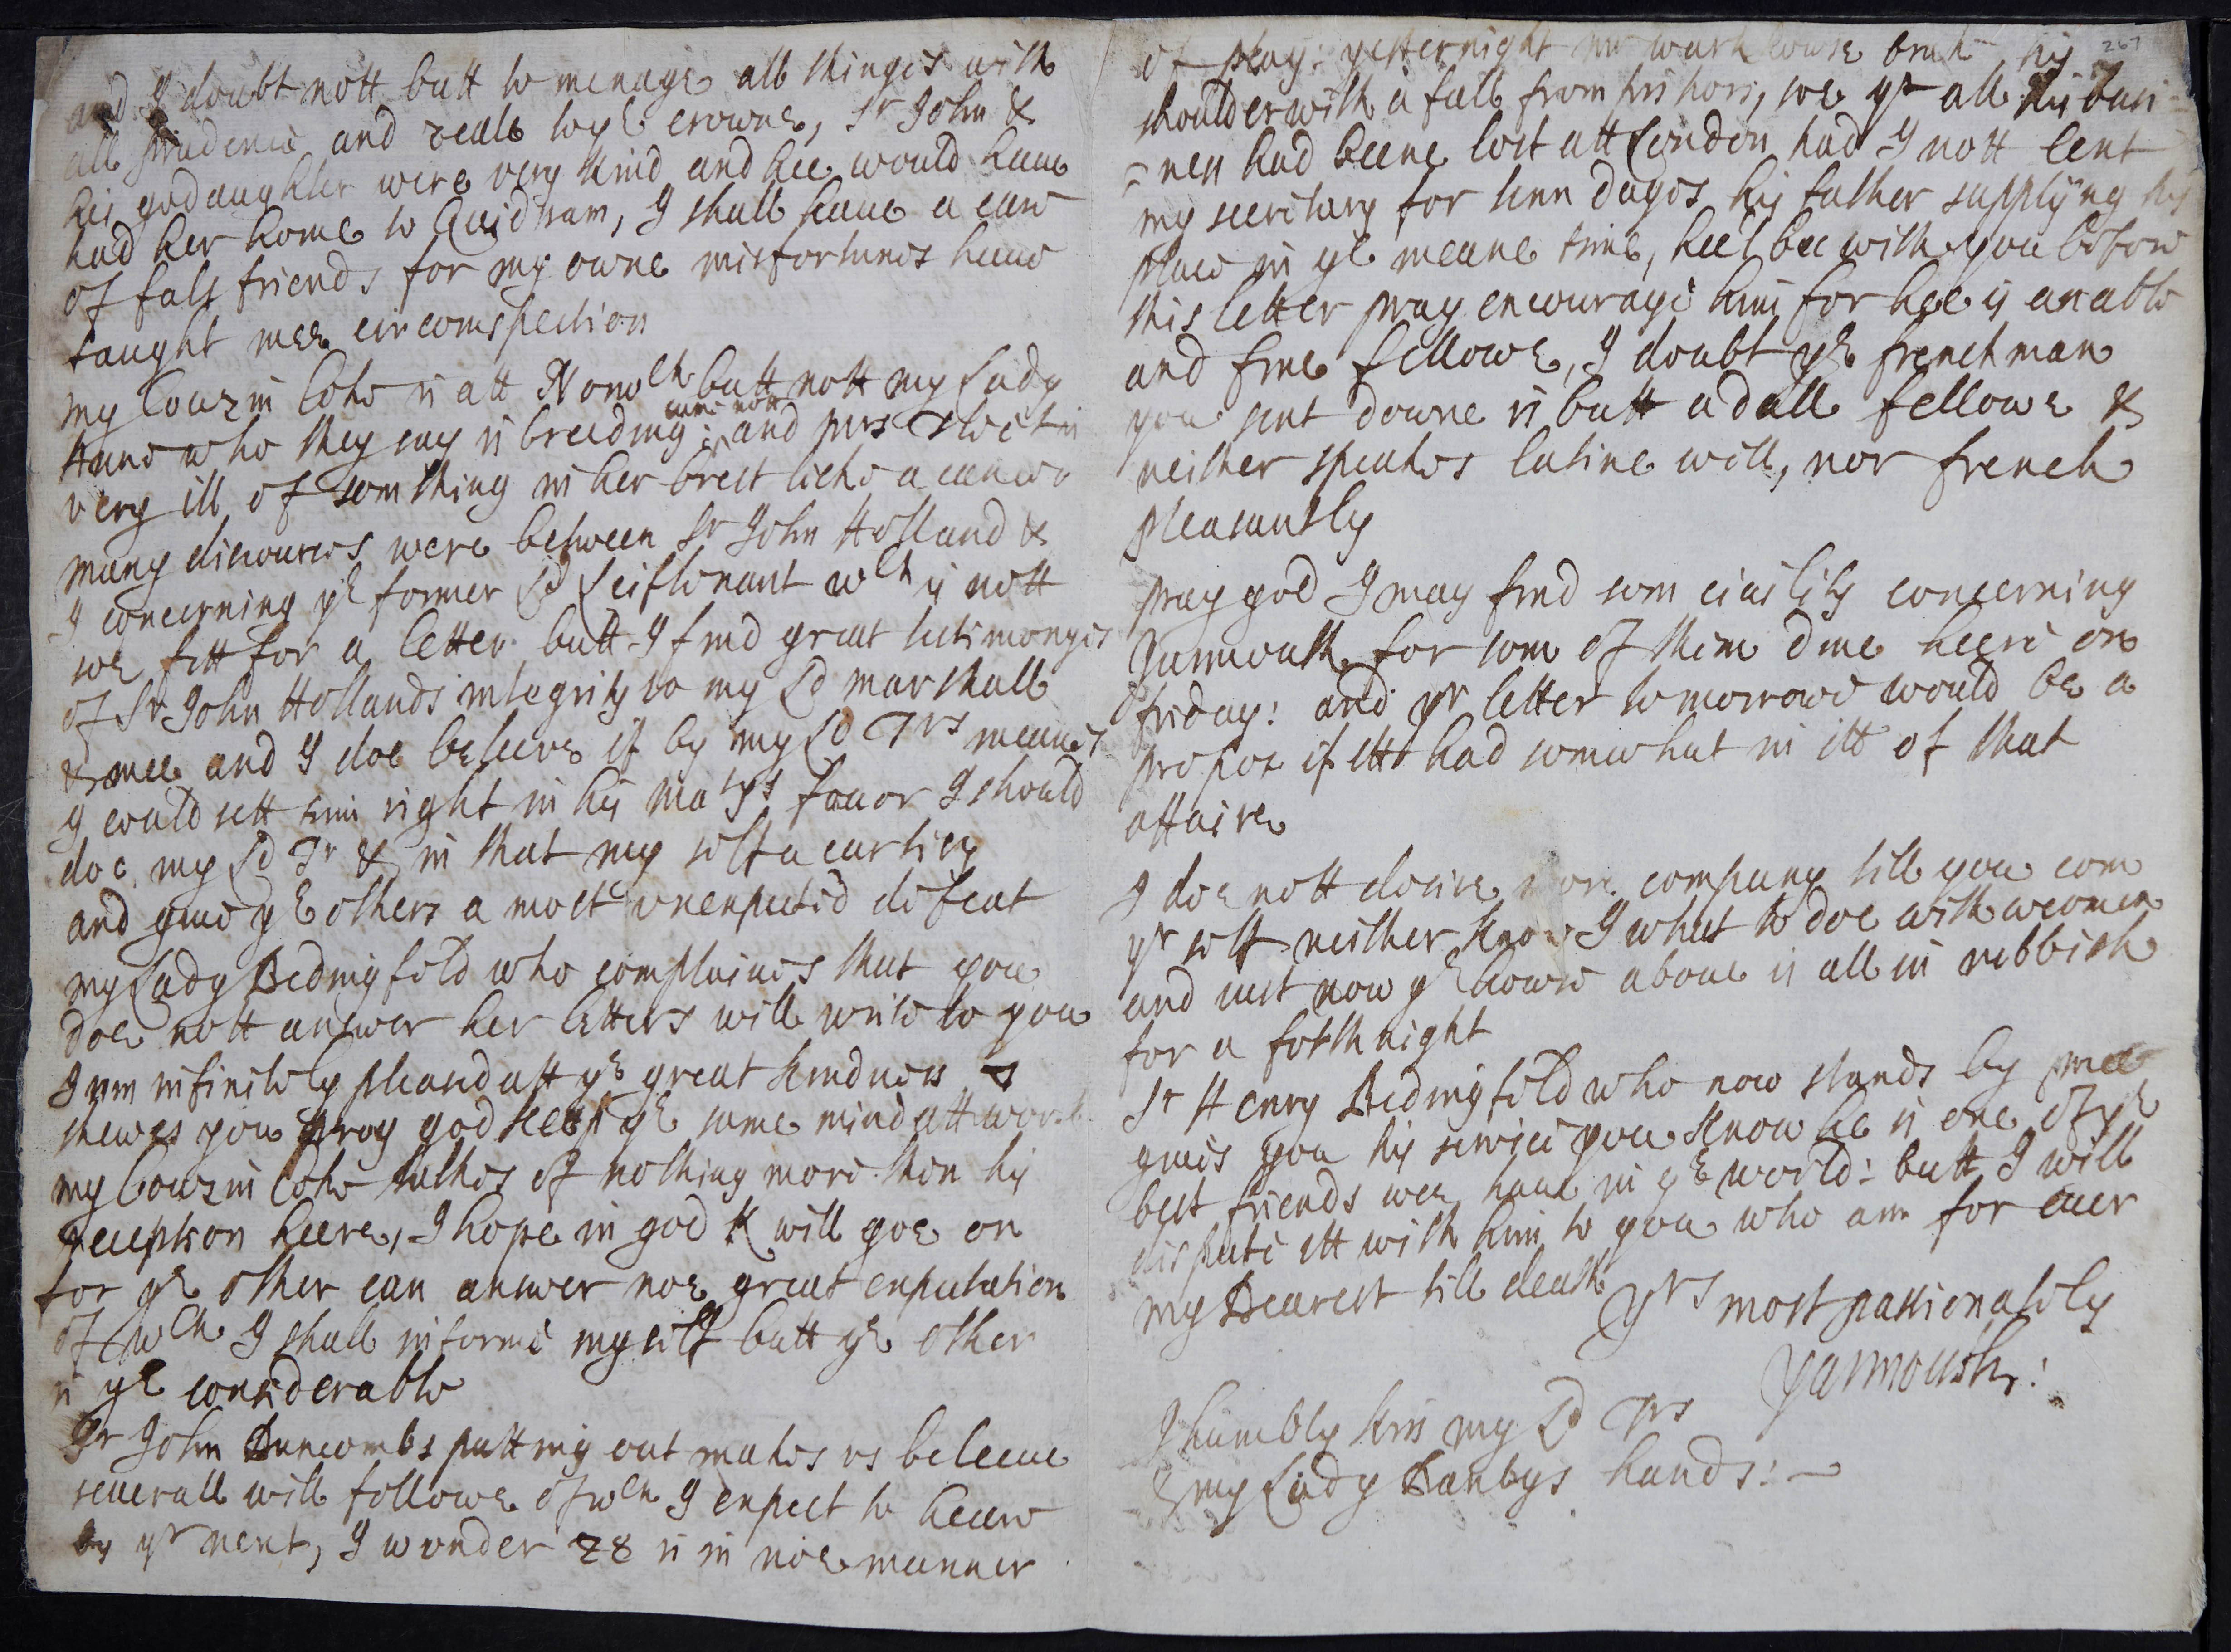 and I doubt nott butt to menage all thinges with
all prudence and zeale to yͤ crowne, Sʳ John &
his godaughter were very kind and hee would haue
had her home to Quidnam, I shall haue a care
of fals friends for my owne misfortunes haue
taught mee circomspection
my Couzin Coke is att Norwᶜʰ butt nott my Lady
Anne who they say is breeding: and mʳˢ is
very ill of somthing in her brest licke a cancer
many discourses were between Sʳ John Holland &
I concerning yͤ former Lᵈ Leiftenant wᶜʰ is nott
soe fitt for a letter butt I find great testimonyes
of Sʳ John Hollands integrity to my Lᵈ marshall
& mee and I doe beleeve if by my Lᵈ Tʳˢ meanes
I could sett him right in his maᵗʸˢ fauor I should
doe my Lᵈ Tʳ & in that my selfe a
and giue yͤ others a most unexpected defeat
my Lady Bedingfeld who complaines that you
doe nott answer her letters will write to you
I am infinitely pleasd att yͤ great kindness
shewes you pray god keep yͤ same mind att work
my Couzin Coke talkes of nothing more then his
reception heere, I hope in god K will goe on
for yͤ other can answer noe great expectation
of wᶜʰ I shall informe myselff butt yͤ other
is yͤ considerable
Sʳ John Duncombs putting out makes us beleeue
seuerall will followe of wᶜʰ I expect to heare
by yʳ next, I wonder 28 is in noe manner
267
of play: yesternight mʳ brake his
shoulder with a fall from his hors, soe yᵗ all his busi-
=ness had beene lost att London had I nott lent
my secretary for tenn dayes his father supplying his
place in yͤ meane time, heel bee with you before
this letter pray encourage him for hee is an able
and fine fellowe, I doubt yͤ frenchman
you sent downe is butt a dull fellowe &
neither speakes latine well, nor french
pleasantly
pray god I may find som ciuility concerning
Yarmouth for som of them dine heere on
friday: and yʳ letter tomorrowe would be a
propos if itt had somwhat in itt of that
affaire
I doe nott desire more company till you com
yʳ self neither know I what to doe with weomen
and iust now yͤ howse aboue is all in rubbish
for a fortthnight
Sʳ Henry Bedingfeld who now stands by mee
giues you his seruice you know he is one of yͤ
best friends wee haue in yͤ world: butt I will
dispute itt with him to you who am for euer
my Dearest till death
Yʳˢ most passionately
Yarmouth:
I humbly kiss my Lᵈ Tʳˢ
& my Lady Danbys hands: